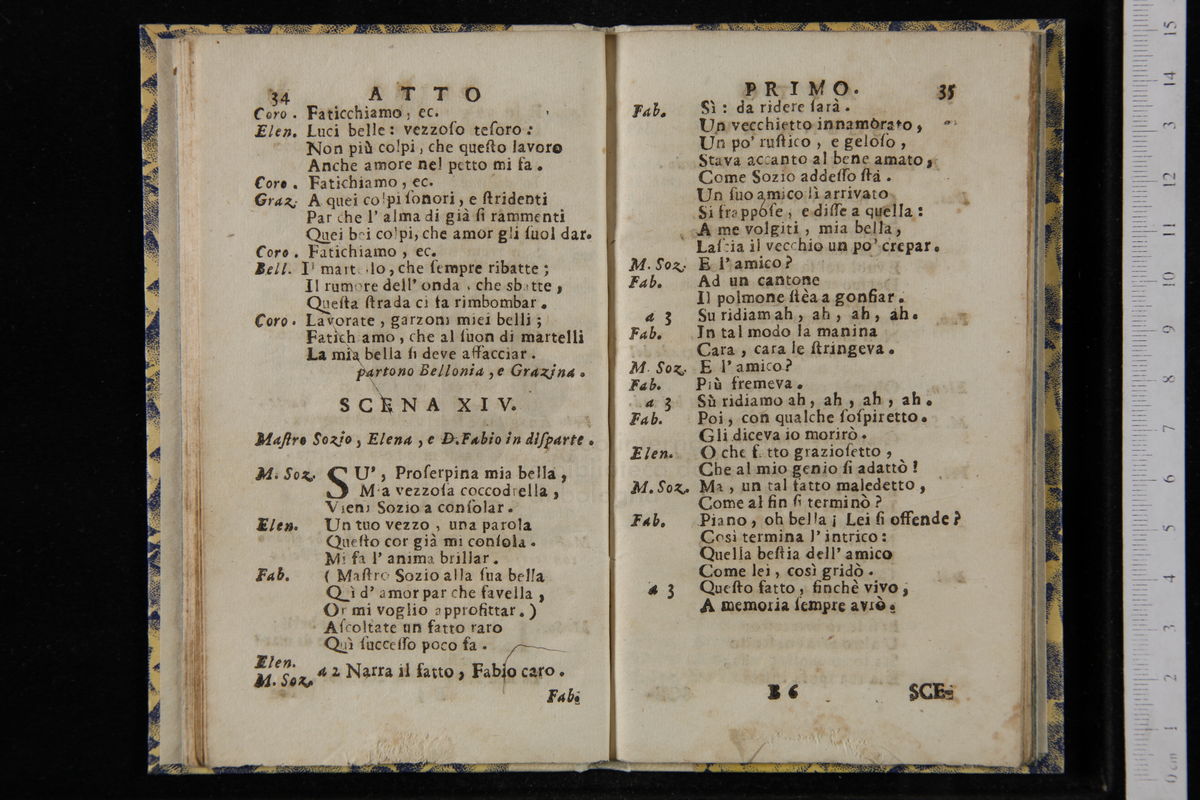 34 ATTO
Coro. Faticchiamo, ec.
Elen. Luci belle: vezzoſo teſoro:
Non più colpi, che queſto lavoro
Anche amore nel petto mi fa.
Coro. Fatichiamo, ec.
Graz. A quei colpi ſonori, e ſtridenti
Par che l'alma di già ſi rammenti
Quei bei colpi, che amor gli ſuol dar.
Coro. Fatichiamo, ec.
Bell. Il martello, che ſempre ribatte;
Il rumore dell'onda, che sbatte,
Queſta ſtrada ci fa rimbombar.
Coro. Lavorate, garzoni miei belli;
Fatichiamo, che al ſuon di martelli
La mia bella ſi deve affacciar.
partono Bellonia, e Grazina.
SCENA XIV.
Maſtro Sozio, Elena, e D. Fabio in diſparte.
M. Soz. SU', Proſerpina mia bella,
Mia vezzoſa coccodrella,
Vieni Sozio a conſolar.
Elen. Un tuo vezzo, una parola
Queſto cor già mi conſola.
Mi fa l'anima brillar.
Fab. (Maſtro Sozio alla ſua bella
Quì d'amor par che favella,
Or mi voglio approfittar.)
Aſcoltate un fatto raro
Quì ſucceſſo poco fa.
Elen.
M. Soz. a 2 Narra il fatto, Fabio caro.
Fab.
PRIMO. 35
Fab. Sì: da ridere ſarà.
Un vecchietto innamorato,
Un po' ruſtico, e geloſo,
Stava accanto al bene amato,
Come Sozio addeſſo ſtá.
Un ſuo amico lì arrivato
Si frappoſe, e diſſe a quella:
A me volgiti, mia bella,
Laſcia il vecchio un po' crepar.
M. Soz. E l'amico?
Fab. Ad un cantone
Il polmone ſtèa a gonfiar.
a 3 Su ridiam ah, ah, ah, ah.
Fab. In tal modo la manina
Cara, cara le ſtringeva.
M. Soz. E l'amico?
Fab. Più fremeva.
a 3 Sù ridiamo ah, ah, ah, ah.
Fab. Poi, con qualche ſoſpiretto.
Gli diceva io morirò.
Elen. O che fatto grazioſetto,
Che al mio genio ſi adattò!
M. Soz. Ma, un tal fatto maledetto,
Come al fin ſi terminò?
Fab. Piano, oh bella¡ Lei ſi offende?
Così termina l'intrico:
Quella beſtia dell'amico
Come lei, così gridò.
a 3 Queſto fatto, finchè vivo,
A memoria ſempre avrò.
B 6 SCE-
0 cm 1 2 3 4 5 6 7 8 9 10 11 12 3 14 15